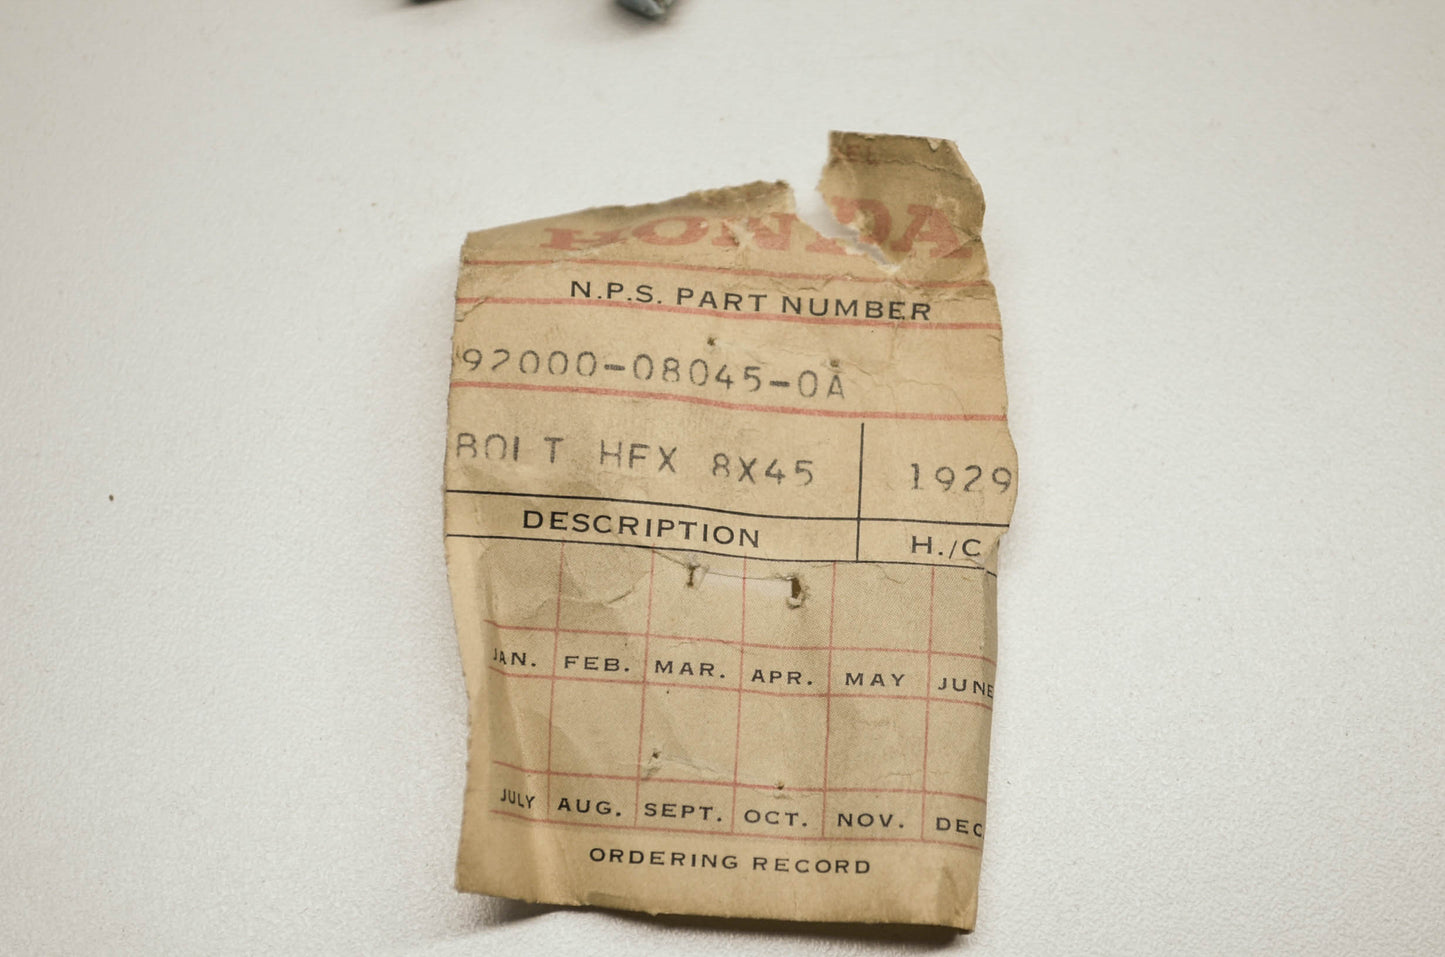 HONDA
N.P.S. PART NUMBER
92000-08045-0A
BOLT HEX 8X45 1929
DESCRIPTION H./C
JAN. FEB. MAR. APR. MAY JUNE
JULY AUG. SEPT. OCT. NOV. DEC
ORDERING RECORD